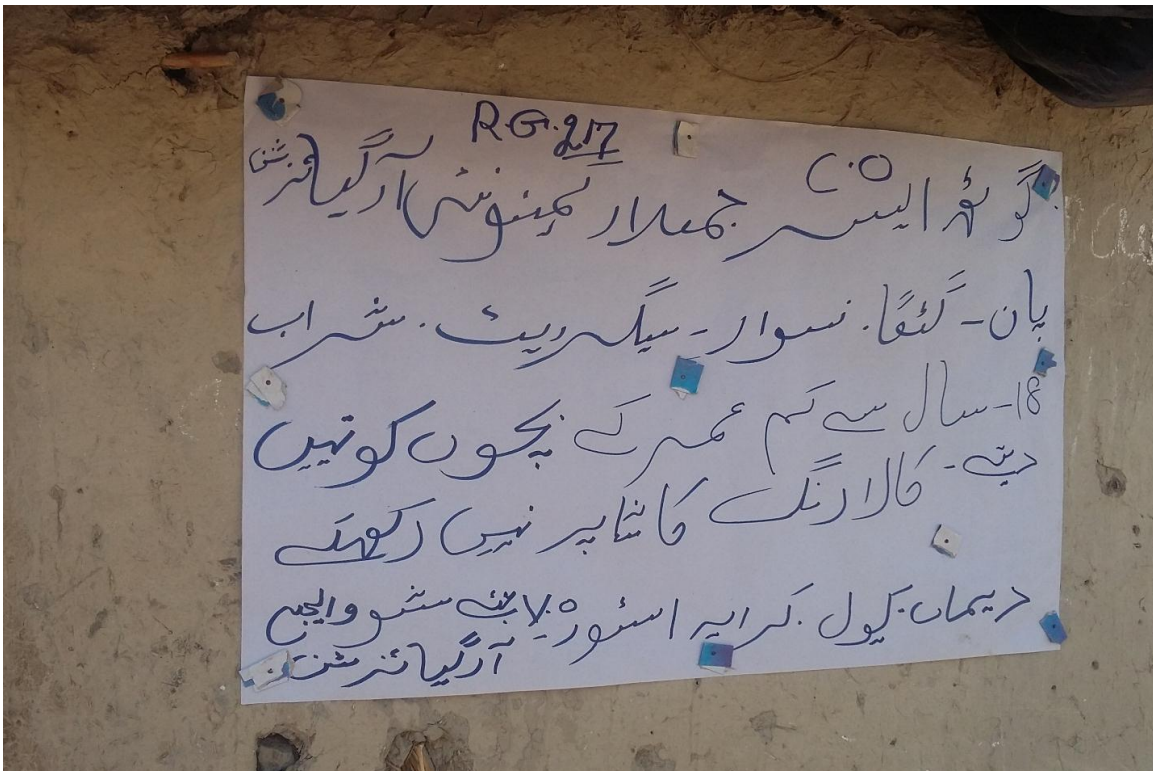 R.G. 217
C.O
گوٹھ ایسر جمعدار کمیونٹی آرگیائزشن
پان - گٹکا. نسوار - سیگریٹ. شراب
18 - سال سے کم عمر کے بچوں کو نہیں
دیتے - کالا رنگ کا نٹا پر نہیں رکھتے
کریانہ اسٹور
آرگیائزشن